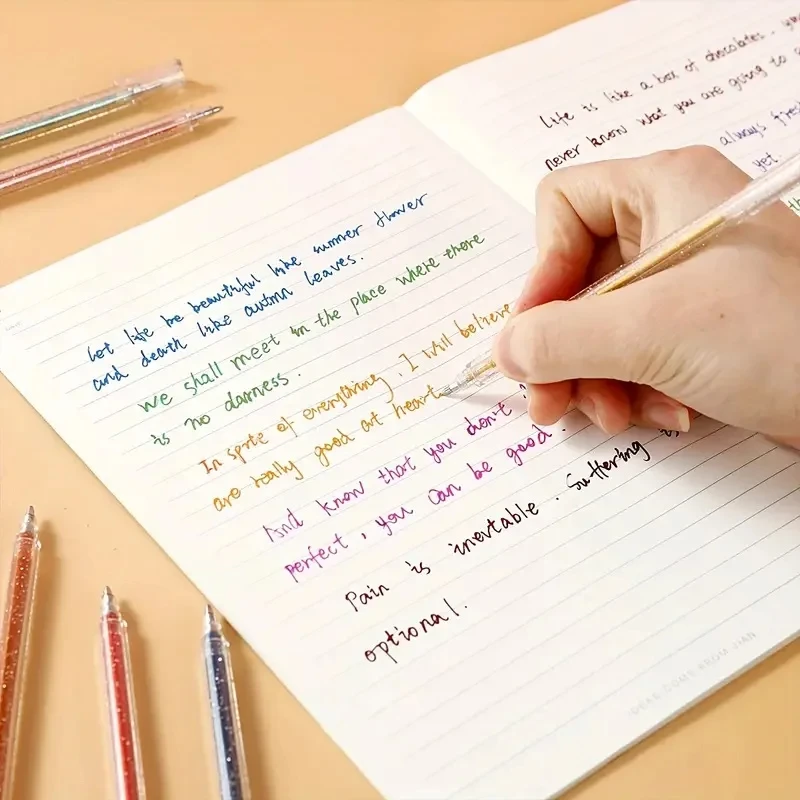 Let life be beautiful like summer flower
and death like autmn leaves.
we shall meet in the place where there
is no darness.
In sprte of everything, I will believe
are really good at heart
And know that you don't
perfect, you can be good.
Pain is inevtable. Suffering is
optional.
DEAR COME FROM JIAN
Life is like a box of chocolates. you
never know what you are going to
always fresh
yet.